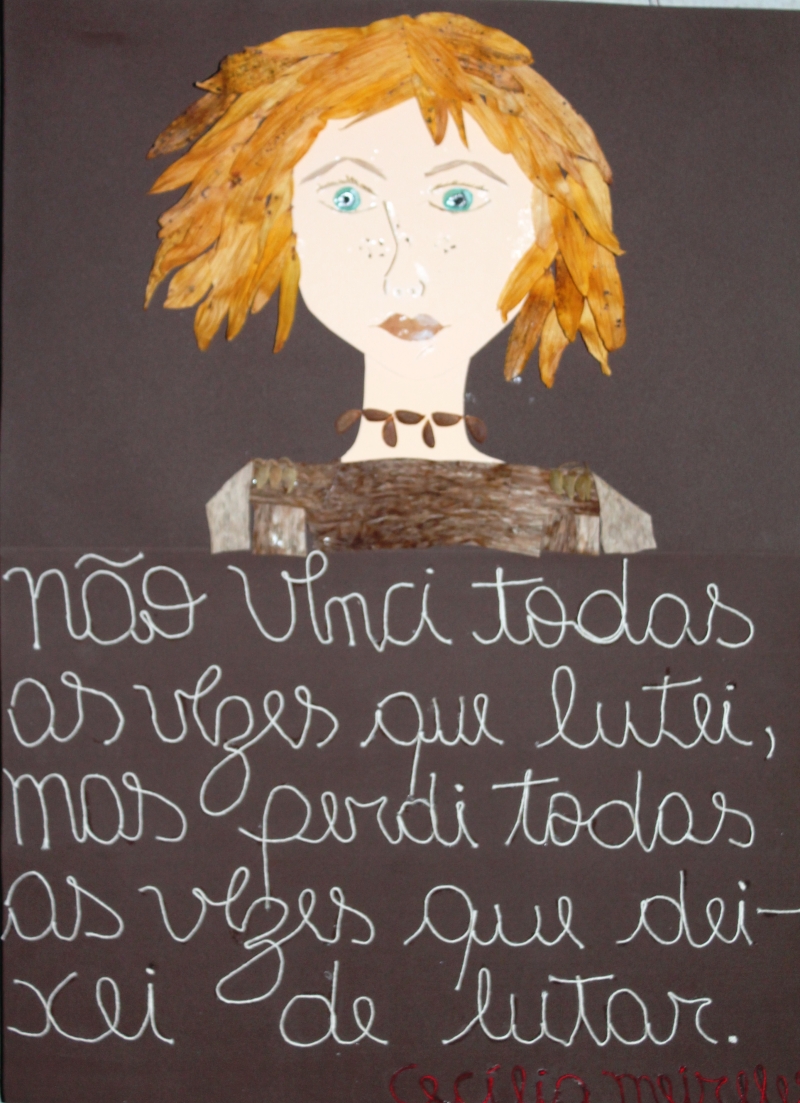 não venci todas
as vezes que lutei,
mas perdi todas
as vezes que dei-
xei de lutar.
Cecília meirelles